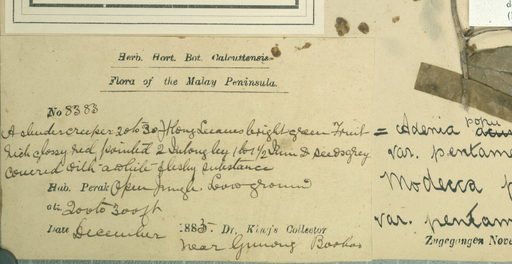 Herb. Hort. Bot. Calcuttensis
Flora of the Malay Peninsula.
No 8383
A slender creeper 20 to 30 ft long Leaves bright green Fruit
rich glossy red pointed 2 In long by 1 to 1½ Diam & seeds grey
covered with a white fleshy substance
Hab. Perak Open jungle Low ground
alt. 200 to 300 ft
Date December 1885. Dr. King's Collector
near Gunong Booboo
= Adenia popu
var. pentame
Modecca p
var. pentam
Zugegangen Nove